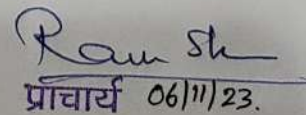 Ram Sh
प्राचार्य 06/11/23.